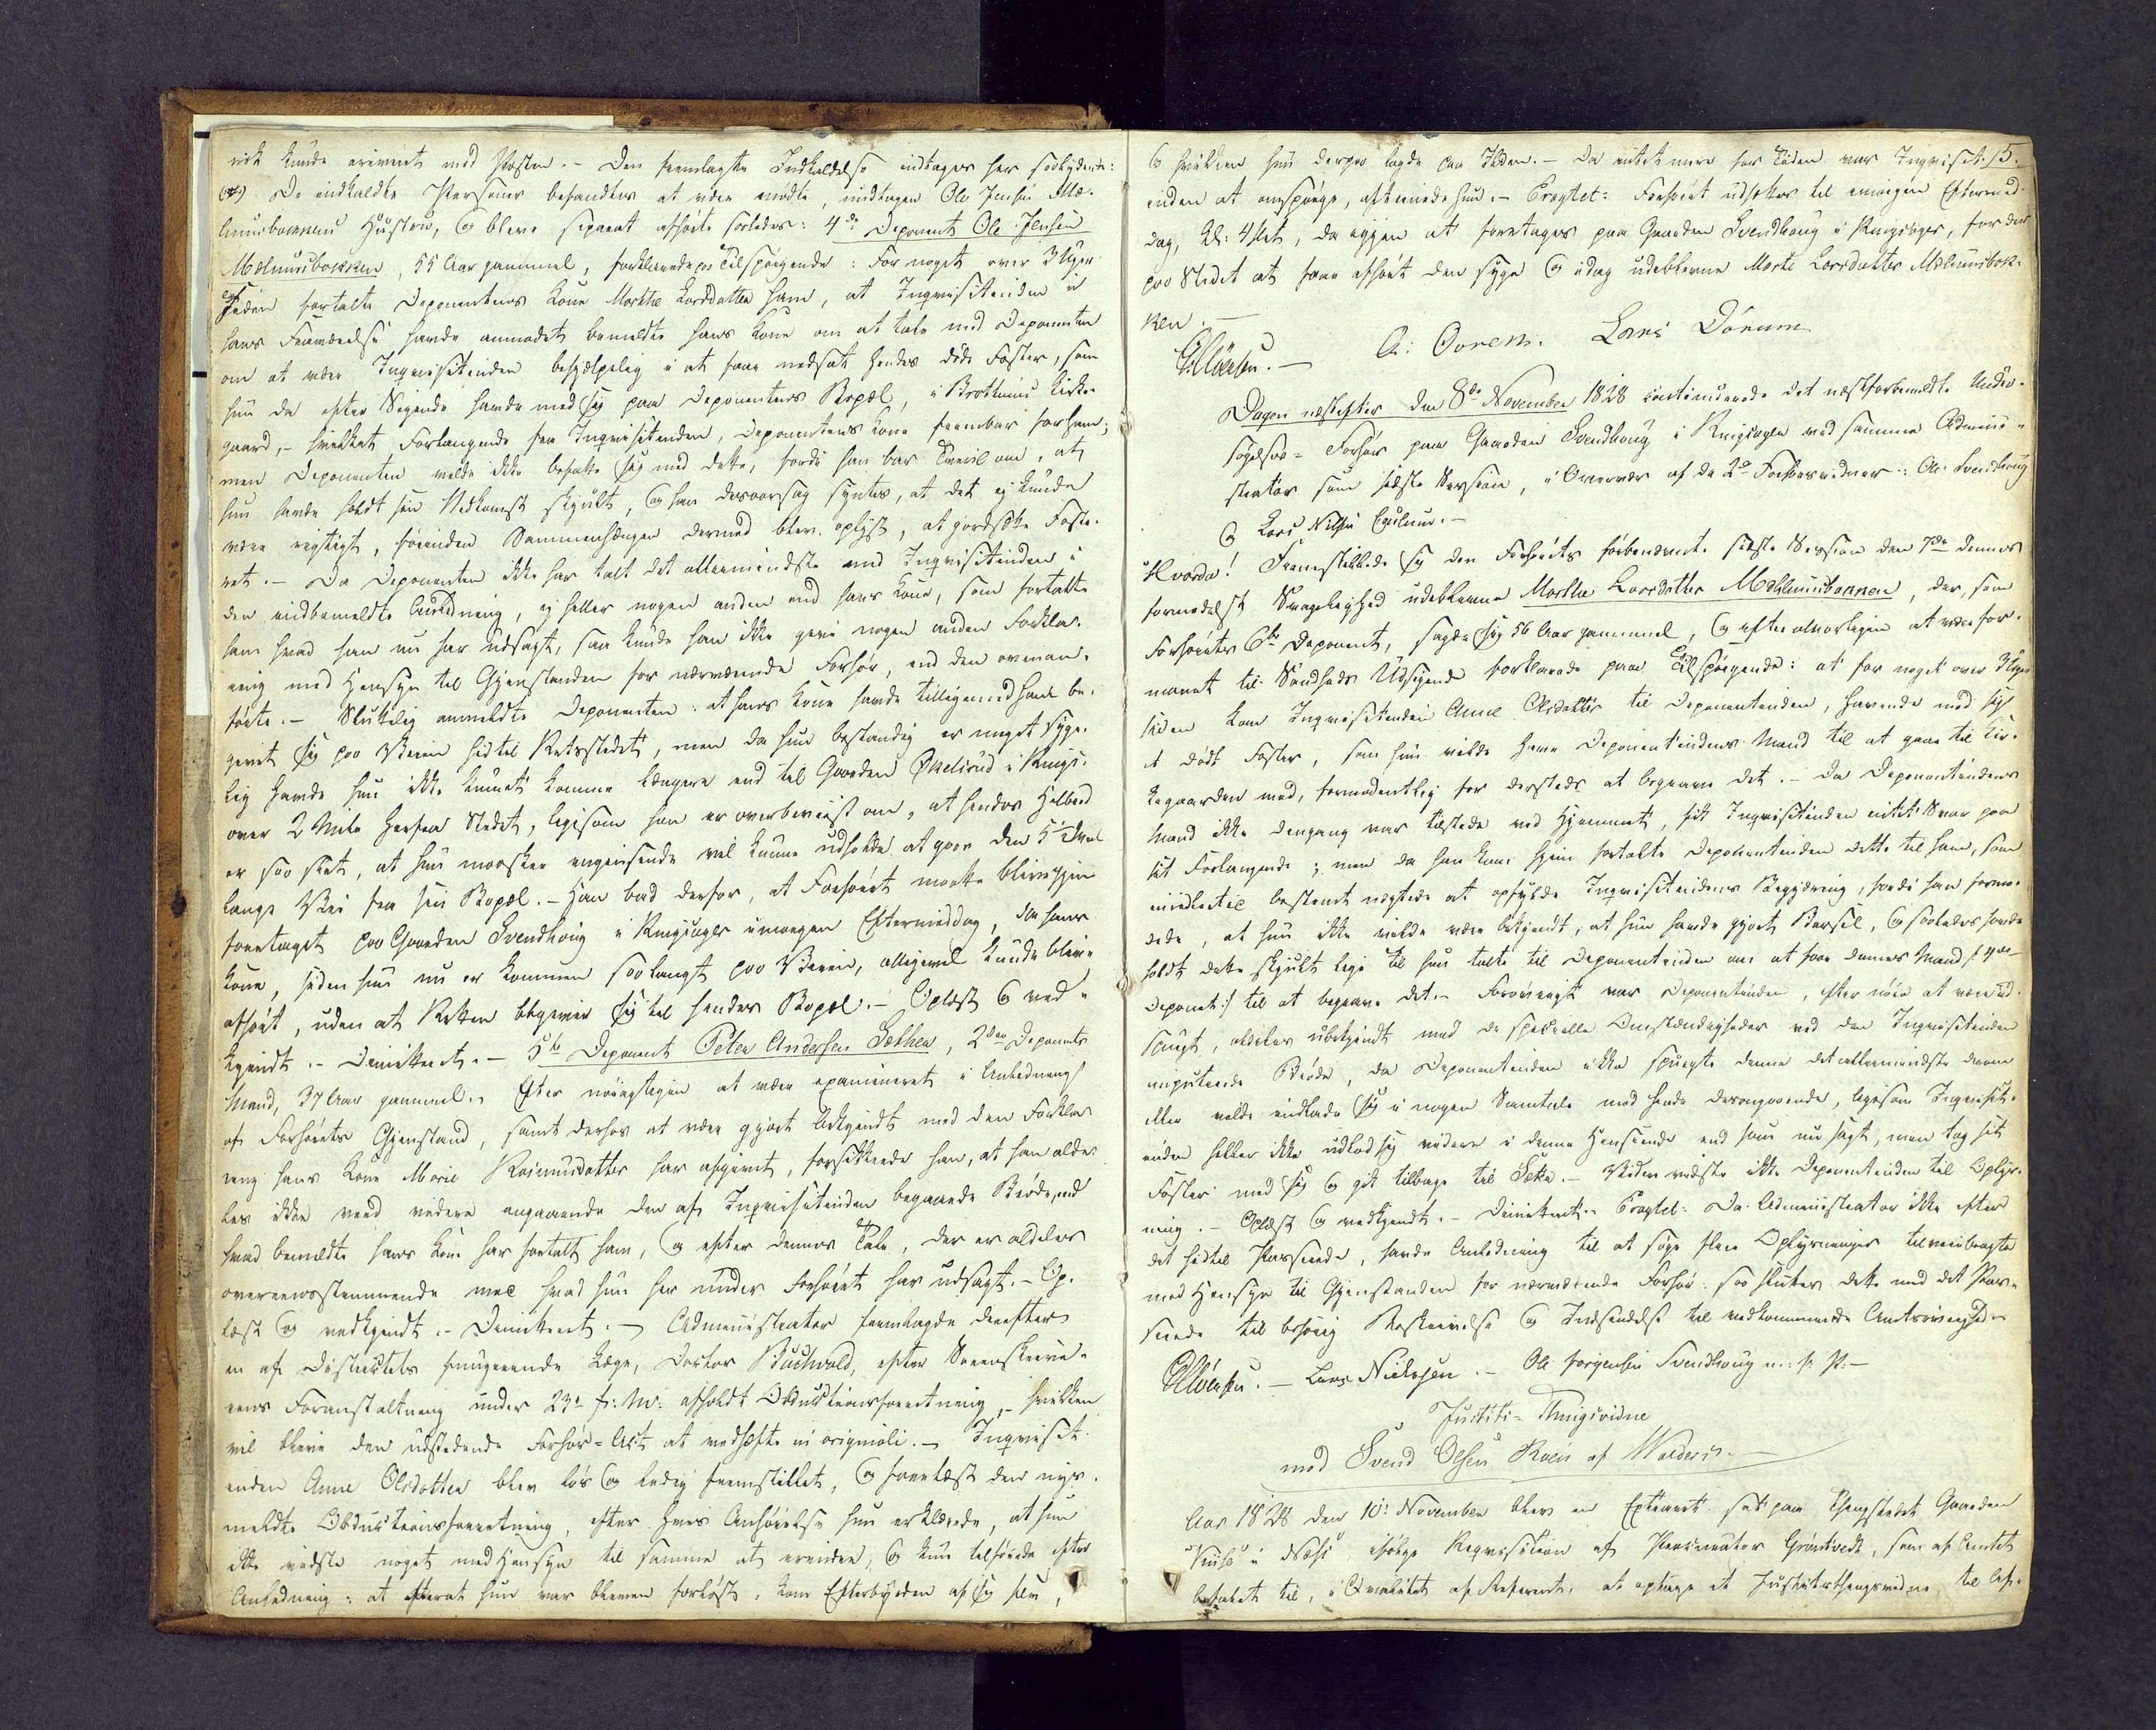 rick kunde erindret med Posten. – Den fremlagte Indkaldelse indtages her saalydende:
(#). De indkaldte Personer befandtes at være mødte, undtagen Ole Jensen Mæ-
linusbakkens Hustru, og bleve separat afhørte saaledes: 4de Deponent Ole Jensen
Mælinusbakken, 55 Aar gammel, forklarede paa Tilspørgende: For noget over 3 Uger
siden fortalte Deponentens Kone Marthe Larsdatter ham, at Inqvisitinden i
hans Fraværelse havde anmodet bemeldte hans Kone om at tale med Deponenten
om at være Inqvisitinden behjælpelig i at faae nedsat hendes døde Foster, som
hun da efter Sigende havde med sig paa Deponentens Bopæl, i Brottums Kirke-
gaard, – hvilket Forlangende fra Inqvisitinden, Deponentens Kone frembar for ham;
men Deponenten vilde ikke befatte sig med dette, fordi han bar Tvivl om, at
hun havde holdt sin Nedkomst skjult, og han desaarsag syntes, at det ej kunde
være rigtigt, førinden Sammenhængen dermed blev oplyst, at jordfæste Foste-
ret. – Da Deponenten ikke har talt det allermindste med Inqvisitinden i
den endbemeldte Anledning, ej heller nogen anden end hans Kone, som fortalte
ham hvad han nu har udsagt, saa kunde han ikke give nogen anden Forkla-
ring med Hensyn til Gjenstanden for nærværende Forhør, end den ovenan-
førte. – Sluttelig anmeldte Deponenten: at hans Kone havde tilligemed ham be-
givet sig paa Veien hidtil Retsstedet, men da hun bestandig er meget syge-
lig havde hun ikke kunnet komme længere end til Gaarden Økelsrud i Rings.
over 2 Mile herfra Stedet, ligesom han er overbeviist om, at hendes Helbred
er saa slet, at hun maaskee ingenlunde vil kunne udholde at gaae den 5 ½ Miil
lange Vei fra sin Bopæl. – Han bad derfor, at Forhøret maatte blive igjen
foretaget paa Gaarden Svendhoug i Ringsager imorgen Eftermiddag, da hans
Kone, siden hun nu er kommen saa langt paa Veien, alligevel kunde blive
afhørt, uden at Retten begiver sig til hendes Bopæl. – Oplæst og ved-
kjendt. – Dimitteret. – 5te Deponent Peter Andersen Sæthen, 2den Deponents
Mand, 37 Aar gammel. Efter nøiagtigen at være examineret i Anledning
af Forhørets Gjenstand, samt derhos at være gjort bekjendt med den Forkla-
ring hans Kone Marie Rasmusdatter har afgivet, forsikkrede han, at han alde-
les ikke veed videre angaaende den af Inqvisitinden begaaede Brøde, end
hvad bemeldte hans Kone har fortalt ham, og efter dennes Tale, der er aldeles
overeensstemmende med hvad hun her under Forhøret har udsagt. – Op-
læst og vedkjendt. – Dimitteret. – Administrator fremlagde derefter
en af Districtets fungerende Læge, Doctor Buchwald, efter Sorenskrive-
rens Foranstaltning under 23de f: M: afholdt Obductionsforretning, – hvilken
vil blive den udstedende Forhør-Act at vedhefte in originali. – Inqvisit-
inden Anne Olsdatter blev løs og ledig fremstillet, og forelæst den nys-
meldte Obductionsforretning, efter hvis Anhørelse hun erklærede, at hun
ikke vidste noget med Hensyn til samme at erindre, og kun tilføiede efter
Anledning: at efterat hun var bleven forløst, kom Efterbyrden af sig selv,
og hvilken hun derpaa lagde paa Ilden. – Da intet mere for Tiden var Inqvisit- 15.
inden at omspørge, aftraadte hun. – Eragtet: Forhøret udsættes til imorgen Eftermid-
dag, Kl: 4 slet, da igjen at foretages paa Gaarden Svendhoug i Ringsager, for der
paa Stedet at faae afhørt den syge og idag udeblevne Marte Larsdatter Mælinusbak-
ken. –
A: Ovren. Lars Dørum
Dagen næstefter den 8de November 1828 continuerede det næstforbemeldte Under-
søgelses-Forhør paa Gaarden Svendhoug i Ringsager ved samme Admini-
strator som sidste Session, i Overvær af de 2de Forhørsvidner: Ole Svendhoug
og Lars Nilsen Egelund. –
Hvorda! Fremstillede sig den Forhørets foibenævnte sidste Session den 7de dennes
formedelst Svagelighed udeblevne Marthe Larsdatter Mælinusbakken, der, som
Forhørets 6te Deponent, sagde sig 56 Aar gammel, og efter alvorligen at være for-
manet til Sandheds Udsigende forklarede paa Tilspørgende: at for noget over 3 Uger
siden kom Inqvisitinden Anne Olsdatter til Deponentinden, havende med sig
et dødt Foster, som hun vilde have Deponentindens Mand til at gaae til Kir-
kegaarden med, formodentlig for dersteds at begrave det. – Da Deponentindens
Mand ikke dengang var tilstede ved Hjemmet, fik Inqvisitinden intet Svar paa
sit Forlangende; men da han kom hjem fortalte Deponentinden dette til ham, som
imidlertid bestemt nægtede at opfylde Inqvisitindens Begjæring, fordi han formo-
dede, at hun ikke vilde være bekjendt, at hun havde gjort Barsel, og saaledes havde
holdt dette skjult lige til hun talte til Deponentinden om at faae dennes Mand (4de
Deponent) til at begrave det. – Forøvrigt var Deponentinden, efter nøie at være ud-
spurgt, aldeles ubekjendt med de specielle Omstændigheder ved den Inqvisitinden
imputerede Brøde, da Deponentinden ikke spurgte denne det allermindste derom
eller vilde indlade sig i nogen Samtale med hende derangaaende, ligesom Inqvisit-
inden heller ikke udlod sig videre i denne Henseende end som nu sagt, men tog sit
Foster med sig og gik tilbage til Sæter. – Videre vidste ikke Deponentinden til Oplys-
ning. – Oplæst og vedkjendt. – Dimitteret. Eragtet: Da Administrator ikke efter
det hidtil Passerede, havde Anledning til at søge flere Oplysninger tilveiebragte
med Hensyn til Gjenstanden for nærværende Forhør: saa sluttes dette med det Pas-
serede til behørig Beskrivelse og Indsendelse til vedkommende Amtsøvrighed. –
Lars Nielssen. – Ole Jørgensen Svendhoug m: f: P: –
Justits-Thingsvidne
med Svend Olsen Roen af Walders. –
Aar 1828 den 10de November blev en Extraret sat paa Thingstedet Gaarden
Kise i Næss ifølge Reqvisition af Procurator Grøntvedt, som af Amtet
befalet til, i Qvalitet af Referent, at optage et Justitsthingsvidne til Af-